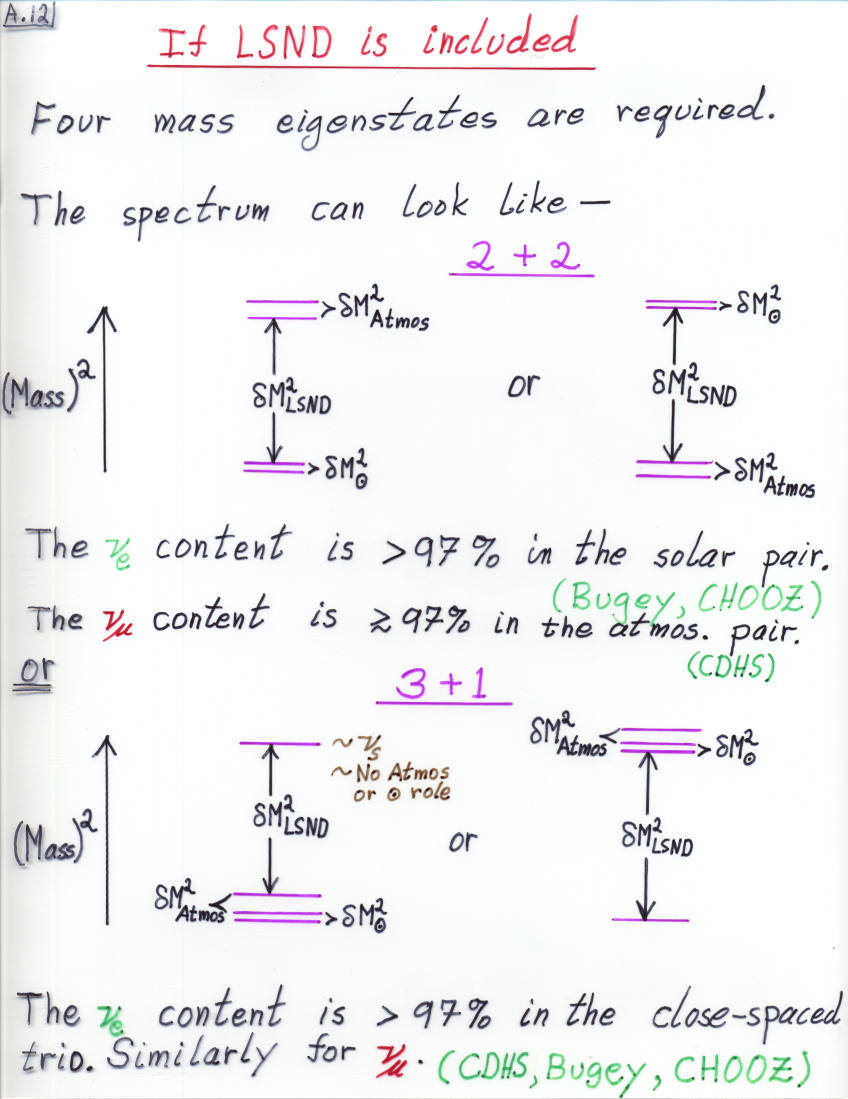 A.12
If LSND is included
Four mass eigenstates are required.
The spectrum can look like —
2 + 2
(Mass)²
>δM²Atmos
δM²LSND
>δM²⊙
or
>δM²⊙
δM²LSND
>δM²Atmos
The νe content is >97% in the solar pair.
(Bugey, CHOOZ)
The νμ content is ≳97% in the atmos. pair.
(CDHS)
or
3 + 1
(Mass)²
~νs
~No Atmos
or ⊙ role
δM²LSND
δM²Atmos<
>δM²⊙
or
δM²Atmos<
>δM²⊙
δM²LSND
The νe content is >97% in the close-spaced
trio. Similarly for νμ. (CDHS, Bugey, CHOOZ)